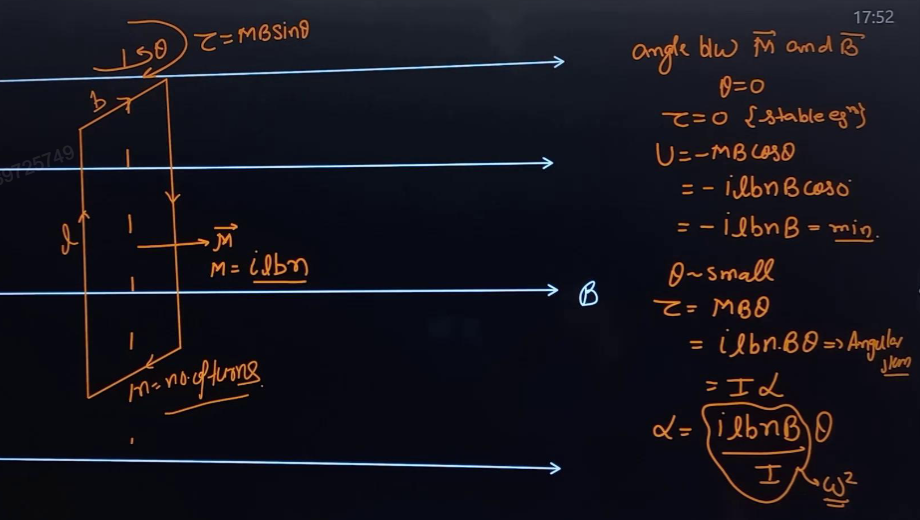 17:52
τ = MBsinθ
θ
b
l
9725749
M⃗
M = ilbn
n = no. of turns
B
angle b/w M⃗ and B⃗
θ = 0
τ = 0 {stable eqⁿ}
U = -MBcosθ
= - ilbnBcos0
= - ilbnB = min.
θ ~ small
τ = MBθ
= ilbn.Bθ ⇒ Angular
= Iα
α = (ilbnB / I) θ
ω²